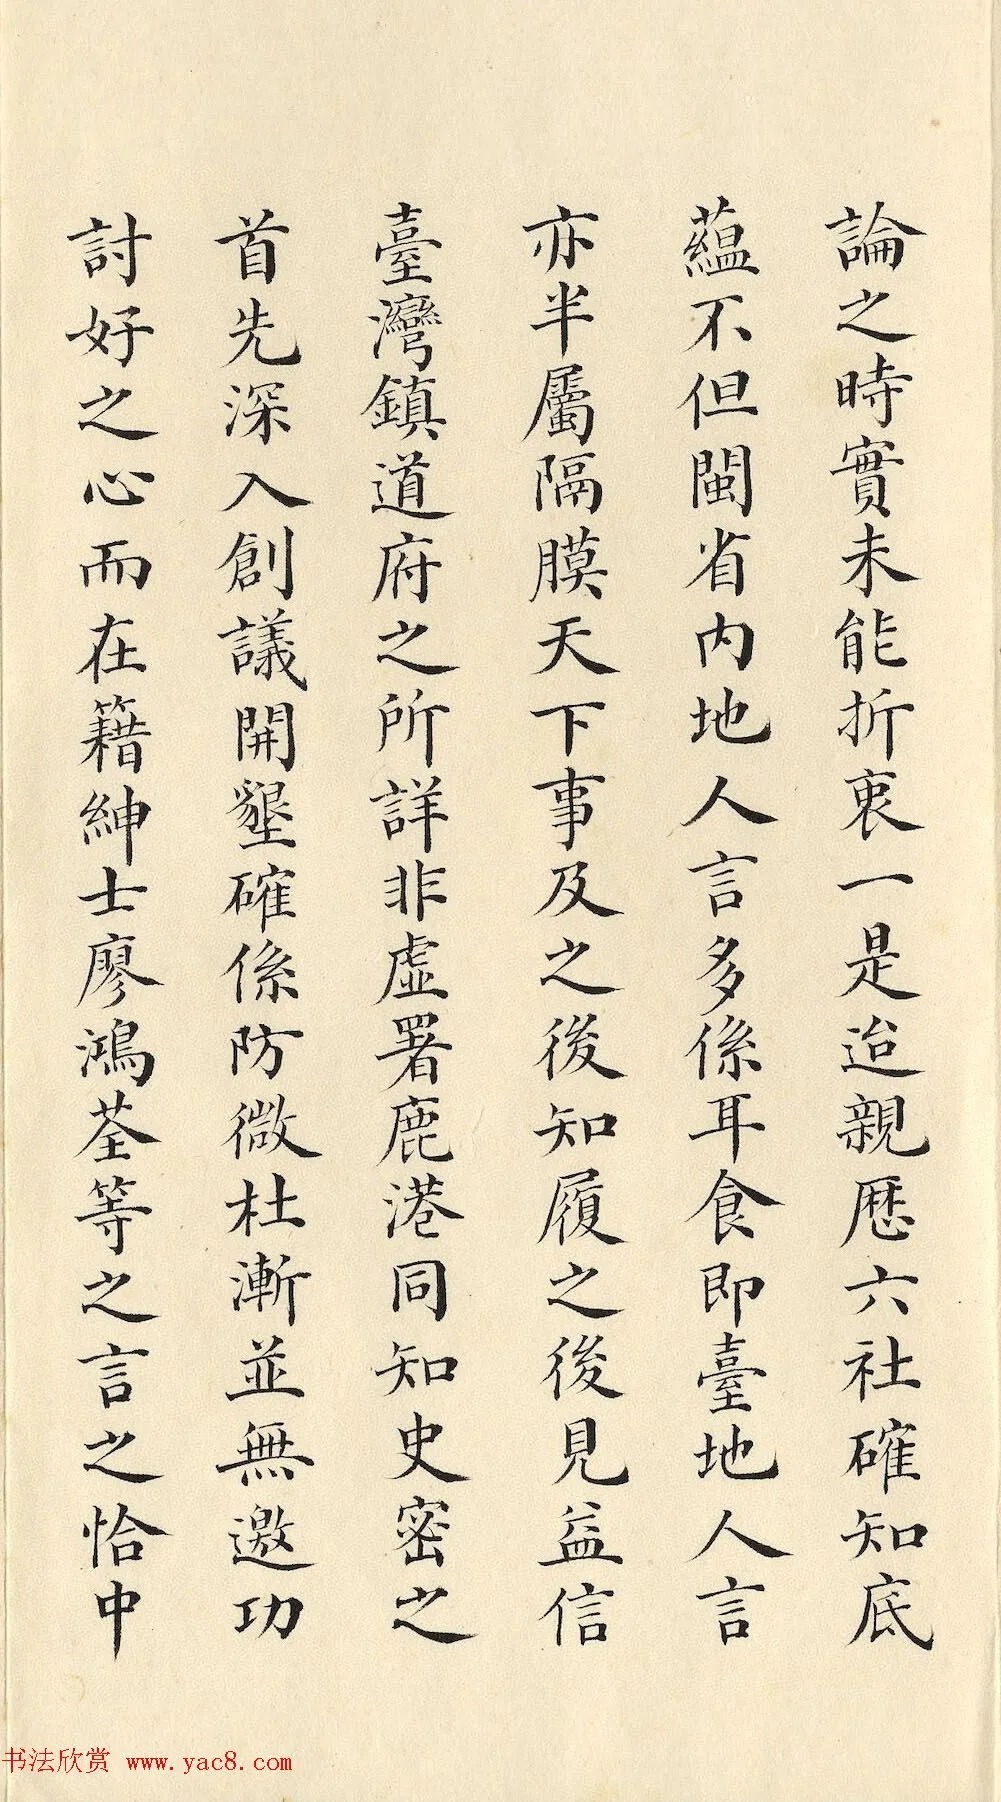 論之時實未能折衷一是迨親歷六社確知底
蘊不但閩省內地人言多係耳食即臺地人言
亦半屬隔膜天下事及之後知履之後見益信
臺灣鎮道府之所詳非虛署鹿港同知史密之
首先深入創議開墾確係防微杜漸並無邀功
討好之心而在籍紳士廖鴻荃等之言之恰中
书法欣赏 www.yac8.com